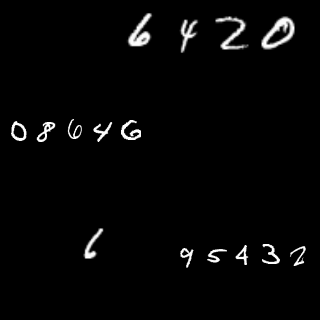 6420
08646
6
95432